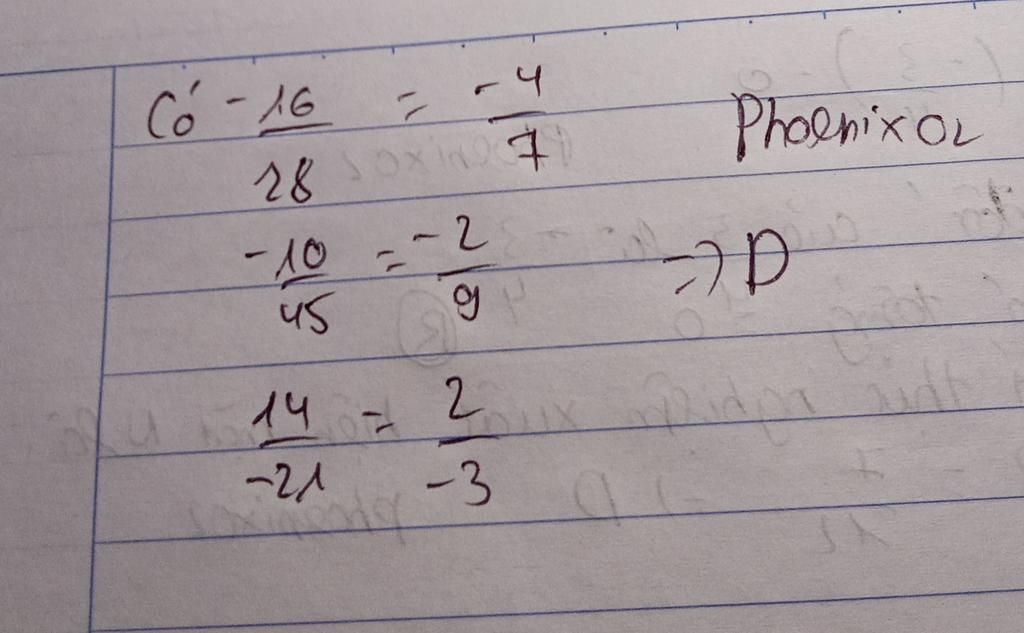 Có -16/28 = -4/7 PhoenixOL
-10/45 = -2/9 => D
14/-21 = 2/-3